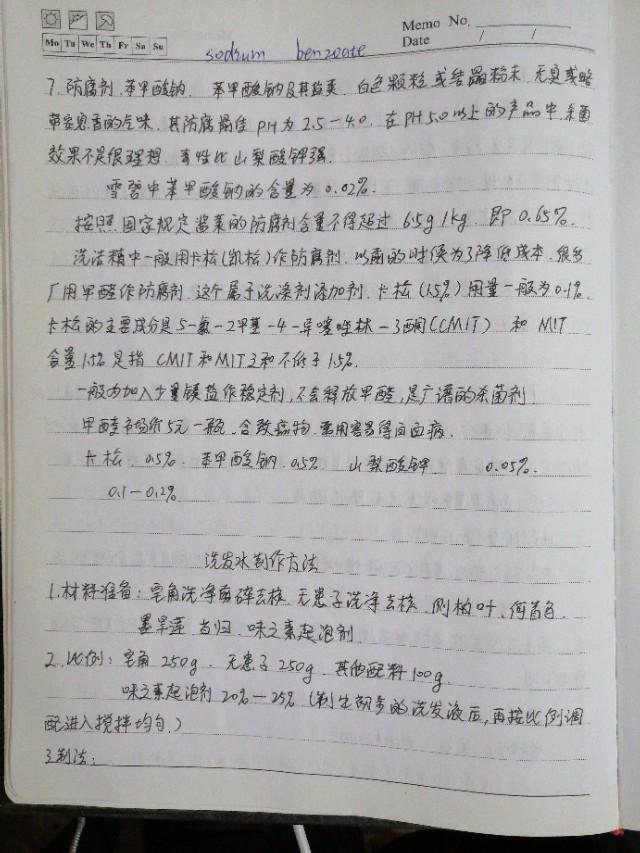 Memo No.
Mo Tu We Th Fr Sa Su
Date / /
sodium benzoate
7. 防腐剂. 苯甲酸钠. 苯甲酸钠及其盐类. 白色颗粒或结晶粉末. 无臭或略
带安息香的气味. 其防腐最佳PH为2.5-4.0. 在PH5.0以上的产品中. 杀菌
效果不是很理想. 毒性比山梨酸钾强.
雪碧中苯甲酸钠的含量为0.02%.
按照国家规定酱菜的防腐剂含量不得超过 6.5g/kg. 即0.65%.
洗洁精中一般用卡松(凯松)作防腐剂. 以前的时候为了降低成本. 很多
厂用甲醛作防腐剂. 这个属于洗涤剂添加剂. 卡松(1.5%)用量一般为0.1%.
卡松的主要成分是5-氯-2甲基-4-异噻唑啉-3酮(CMIT) 和 MIT
含量1.5%是指 CMIT和MIT之和不低于1.5%.
一般为加入少量镁盐作稳定剂, 不会释放甲醛, 是广谱的杀菌剂.
甲醛市场价5元一瓶. 含致癌物. 常用容易得白血病.
卡松. 0.5%. 苯甲酸钠 0.5% 山梨酸钾 0.05%.
0.1-0.12%
洗发水制作方法
1. 材料准备: 皂角洗净剪碎去核. 无患子洗净去核. 侧柏叶. 何首乌.
墨旱莲 当归. 味之素起泡剂.
2. 比例: 皂角250g. 无患子250g. 其他配料100g.
味之素起泡剂20%-25% (制出的洗发液后, 再按比例调
配进入搅拌均匀.)
3. 制法: